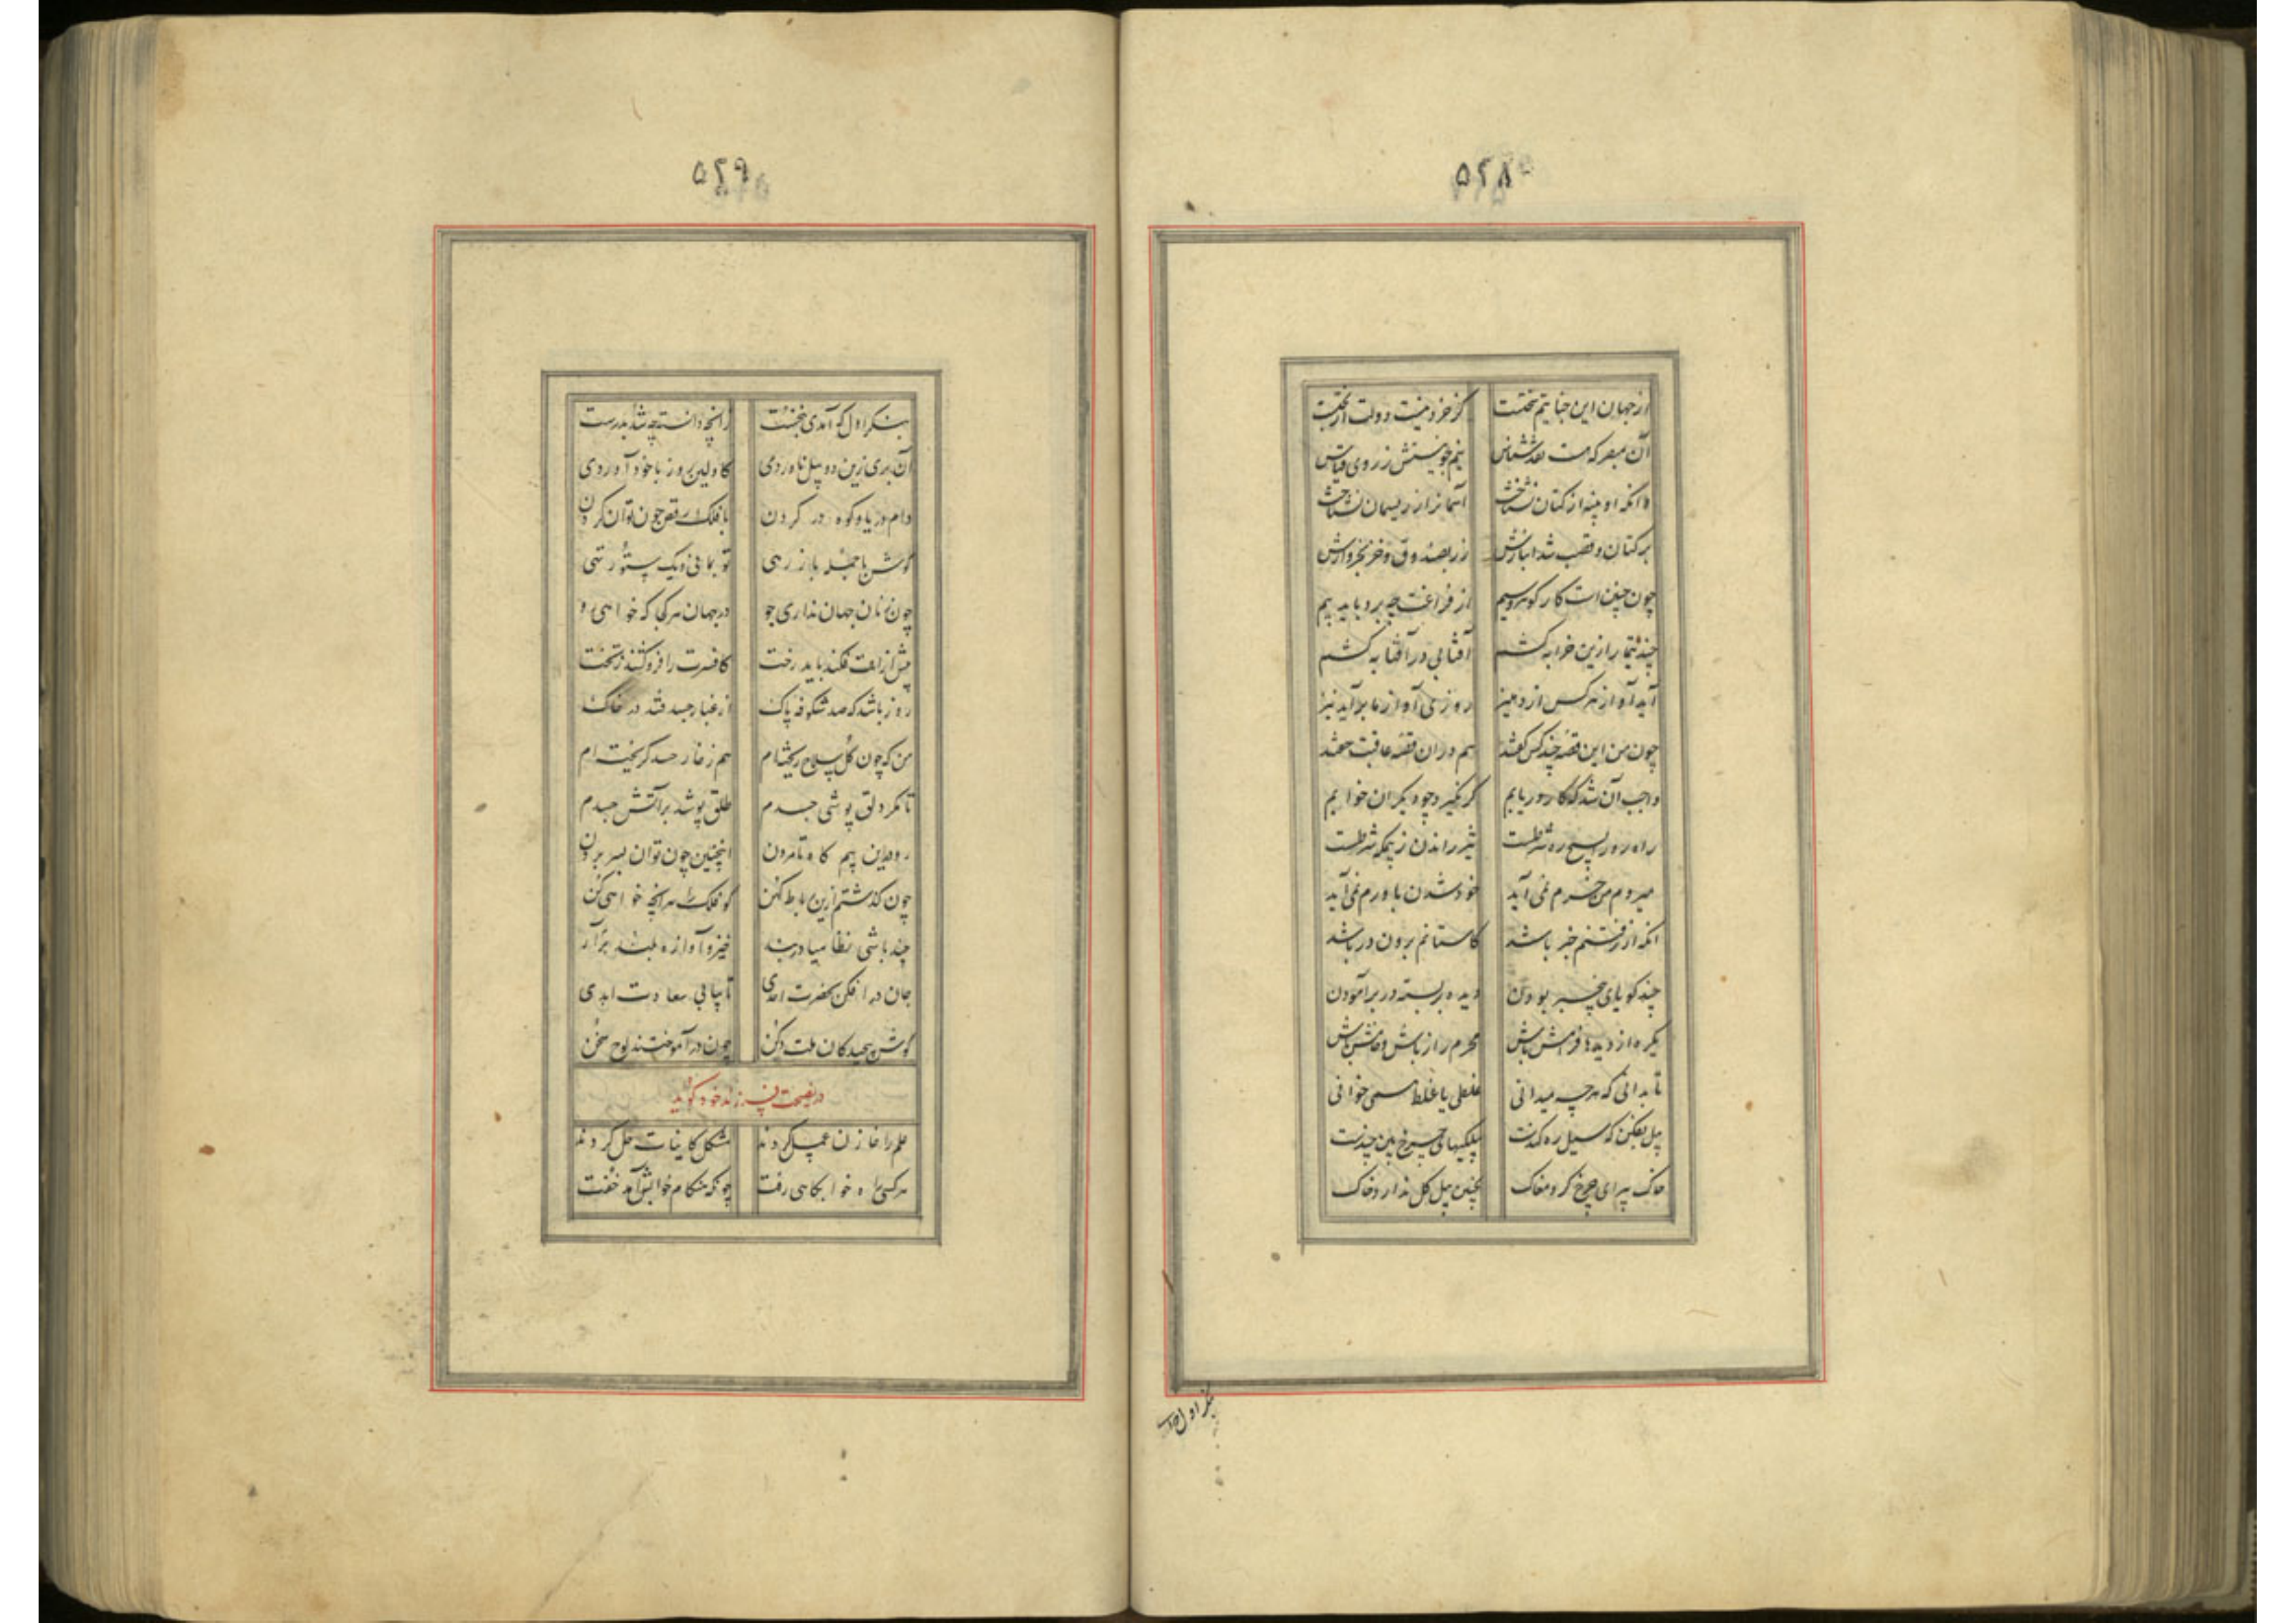 ۵۲۸
از جهان این جنایتم سختست کز خرد نیست دولت از بختست
آن مبصر که هست نقدشناس نیم جو نیستش ز روی قیاس
وانکه او پنبه از کتان نشناخت آسمان را ز ریسمان نشناخت
بر کتان و قصب شد انبارش زر بصندوق و خز بخروارش
چون چنین است کار گوهر و سیم از فراغت چه برد باید بیم
چند تیمار ازین خرابه کشم آفتابی در آفتابه کشم
آید آواز هر کس از دهلیز روزی آواز ما برآید نیز
چون من این قصه چند کس گفتند هم در ان قصه عاقبت خفتند
واجب آن شد که کار دریابم گر نگیرد چو دیگران خوابم
راه رو را بسیچ ره شرطست تیز راندن ز بیمگه شرطست
میروم من خرم نمی آید خود شدن باورم نمی آید
انکه از رفتنم خبر باشد کاستانم برون در باشد
چند گویای بیخبر بودن دیده بربسته در برآمودن
یکره از دیده‌ها فرامش باش محرم راز باش و خامش باش
تا بدانی که هرچه میدانی غلطی یا غلط همی خوانی
پیل بفکن که سیل ره کندست پیلکیهای چرخ بین چندست
خاک پیرای چرخ کرد مغاک بچنین پیل گل ندارد خاک
بنگر اول
۵۲۹
بنگر اول که آمدی ز نخست زانچه دانستی چه شد بدرست
آن بری زین دو پیل ناوردی کاولین روز با خود آوردی
وام دریا و کوه در گردن با فلک رقص چون توان کردن
کوش تا جمله باز رهی تو بمانی و یک ستور تهی
چون ز نان جهان نداری جو در جهان هر کجا که خواهی رو
پیش از انت فکند باید رخت کافسرت را فرو کشند ز تخت
روز باشد که صد شکوفه پاک از غبار حسد فتد در خاک
من که چون گل سلاح ریخته‌ام هم ز خار حسد گریخته‌ام
تا مگر دلق پوشی جسدم طلق پوشد بر آتش حسدم
ره درین بیم گاه تا مردن اینچنین چون توان بسر بردن
چون گذشتم ازین رباط کهن گو فلک را هر انچه خواهی کن
چند باشی نظامیا دربند خیز و آوازه بلند برآر
جان در افکن بحضرت احدی تا بیابی سعادت ابدی
گوش پیچیدگان ملت و کن چون درآموختند لوح سخن
در نصیحت فرزند خود گوید
علم را خازن عمل کردند مشکل کاینات حل کردند
هر کسی راه خوابگاهی رفت چونکه هنگام خوابش آمد خفت